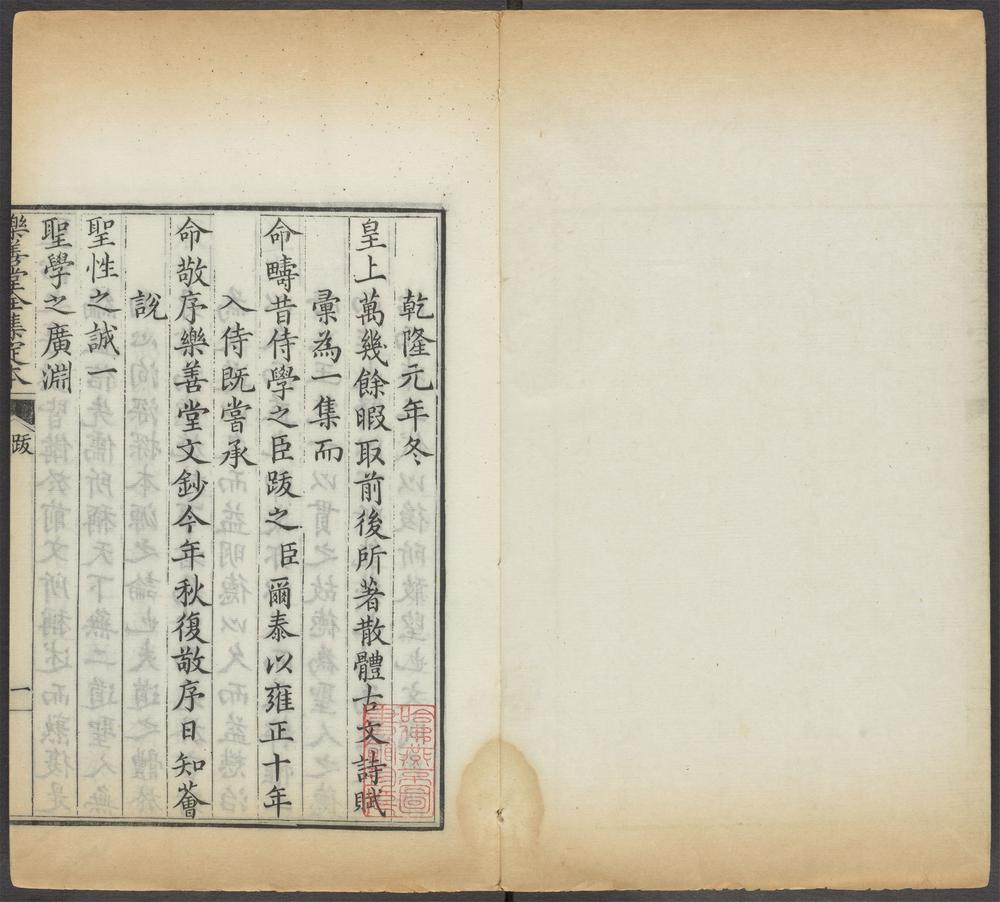 乾隆元年冬
皇上萬幾餘暇取前後所著散體古文詩賦
彙為一集而
命疇昔侍學之臣跋之臣爾泰以雍正十年
入侍既嘗承
命敬序樂善堂文鈔今年秋復敬序日知薈
說
聖性之誠一
聖學之廣淵
樂善堂全集定本
跋
一
哈佛燕京圖